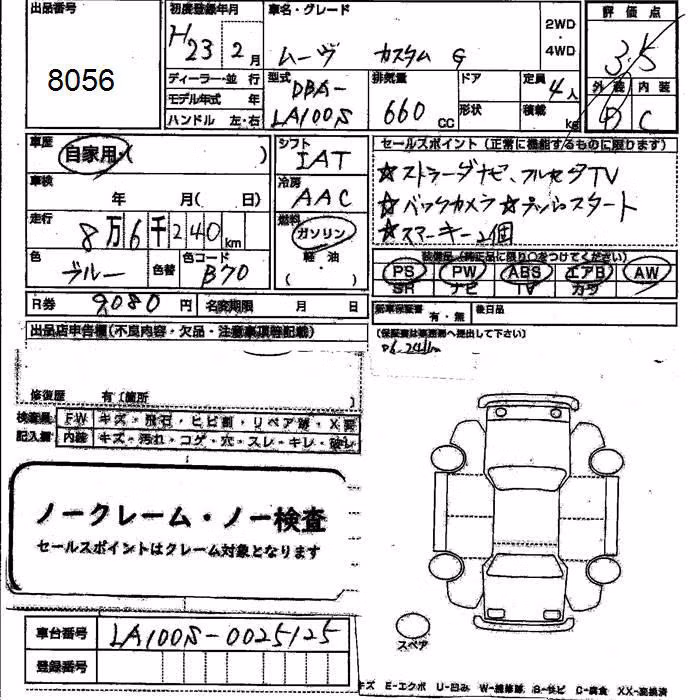 出品番号
8056
初度登録年月
H23 2月
車名・グレード
ムーヴ カスタム G
2WD
・
4WD
評価点
3.5
外装 内装
4 C
ディーラー・並 行
モデル年式 年
ハンドル 左・右
型式
DBA-
LA100S
排気量
660 CC
ドア
形状
定員
4人
積載
kg
車歴
自家用・( )
車検
年 月( 日)
走行
8万6千240km
色
ブルー
色替
色コード
B70
R券 9080 円 名変期限 月 日
シフト
IAT
冷房
AAC
燃料
ガソリン
軽・油
( )
セールスポイント(正常に機能するものに限ります)
☆ストラーダナビ、フルセグTV
☆バックカメラ ☆プッシュスタート
☆スマートキー2個
装備品(純正品に限り○をつけてください)
PS PW ABS エアB AW
SR ナビ TV カワ
新車保証書 有・無 後日品
(保証書は事務局へ提出して下さい)
出品店申告欄(不良内容・欠品・注意事項等記載)
修復歴 有(箇所 )
検査員 FW キズ・飛石・ヒビ割・リペア跡・X要
記入欄 内装 キズ・汚れ・コゲ・穴・スレ・キレ・破レ
ノークレーム・ノー検査
セールスポイントはクレーム対象となります
車台番号 LA100S-0025125
登録番号
スペア
キズ E-エクボ U-凹み W-補修跡 S-サビ C-腐食 XX-交換済